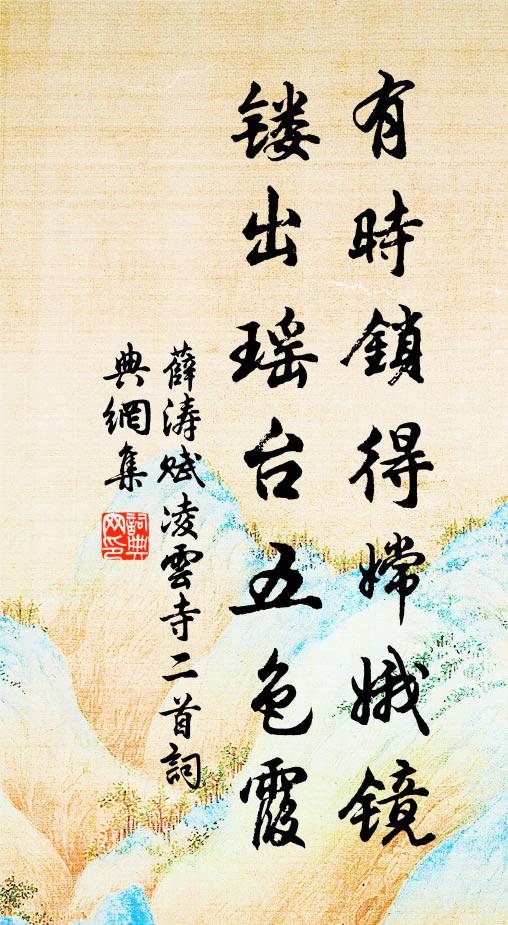 有時鎖得嫦娥镜
镂出瑶台五色霞
薛涛赋凌雲寺二首詞
典網集
詞典
网印